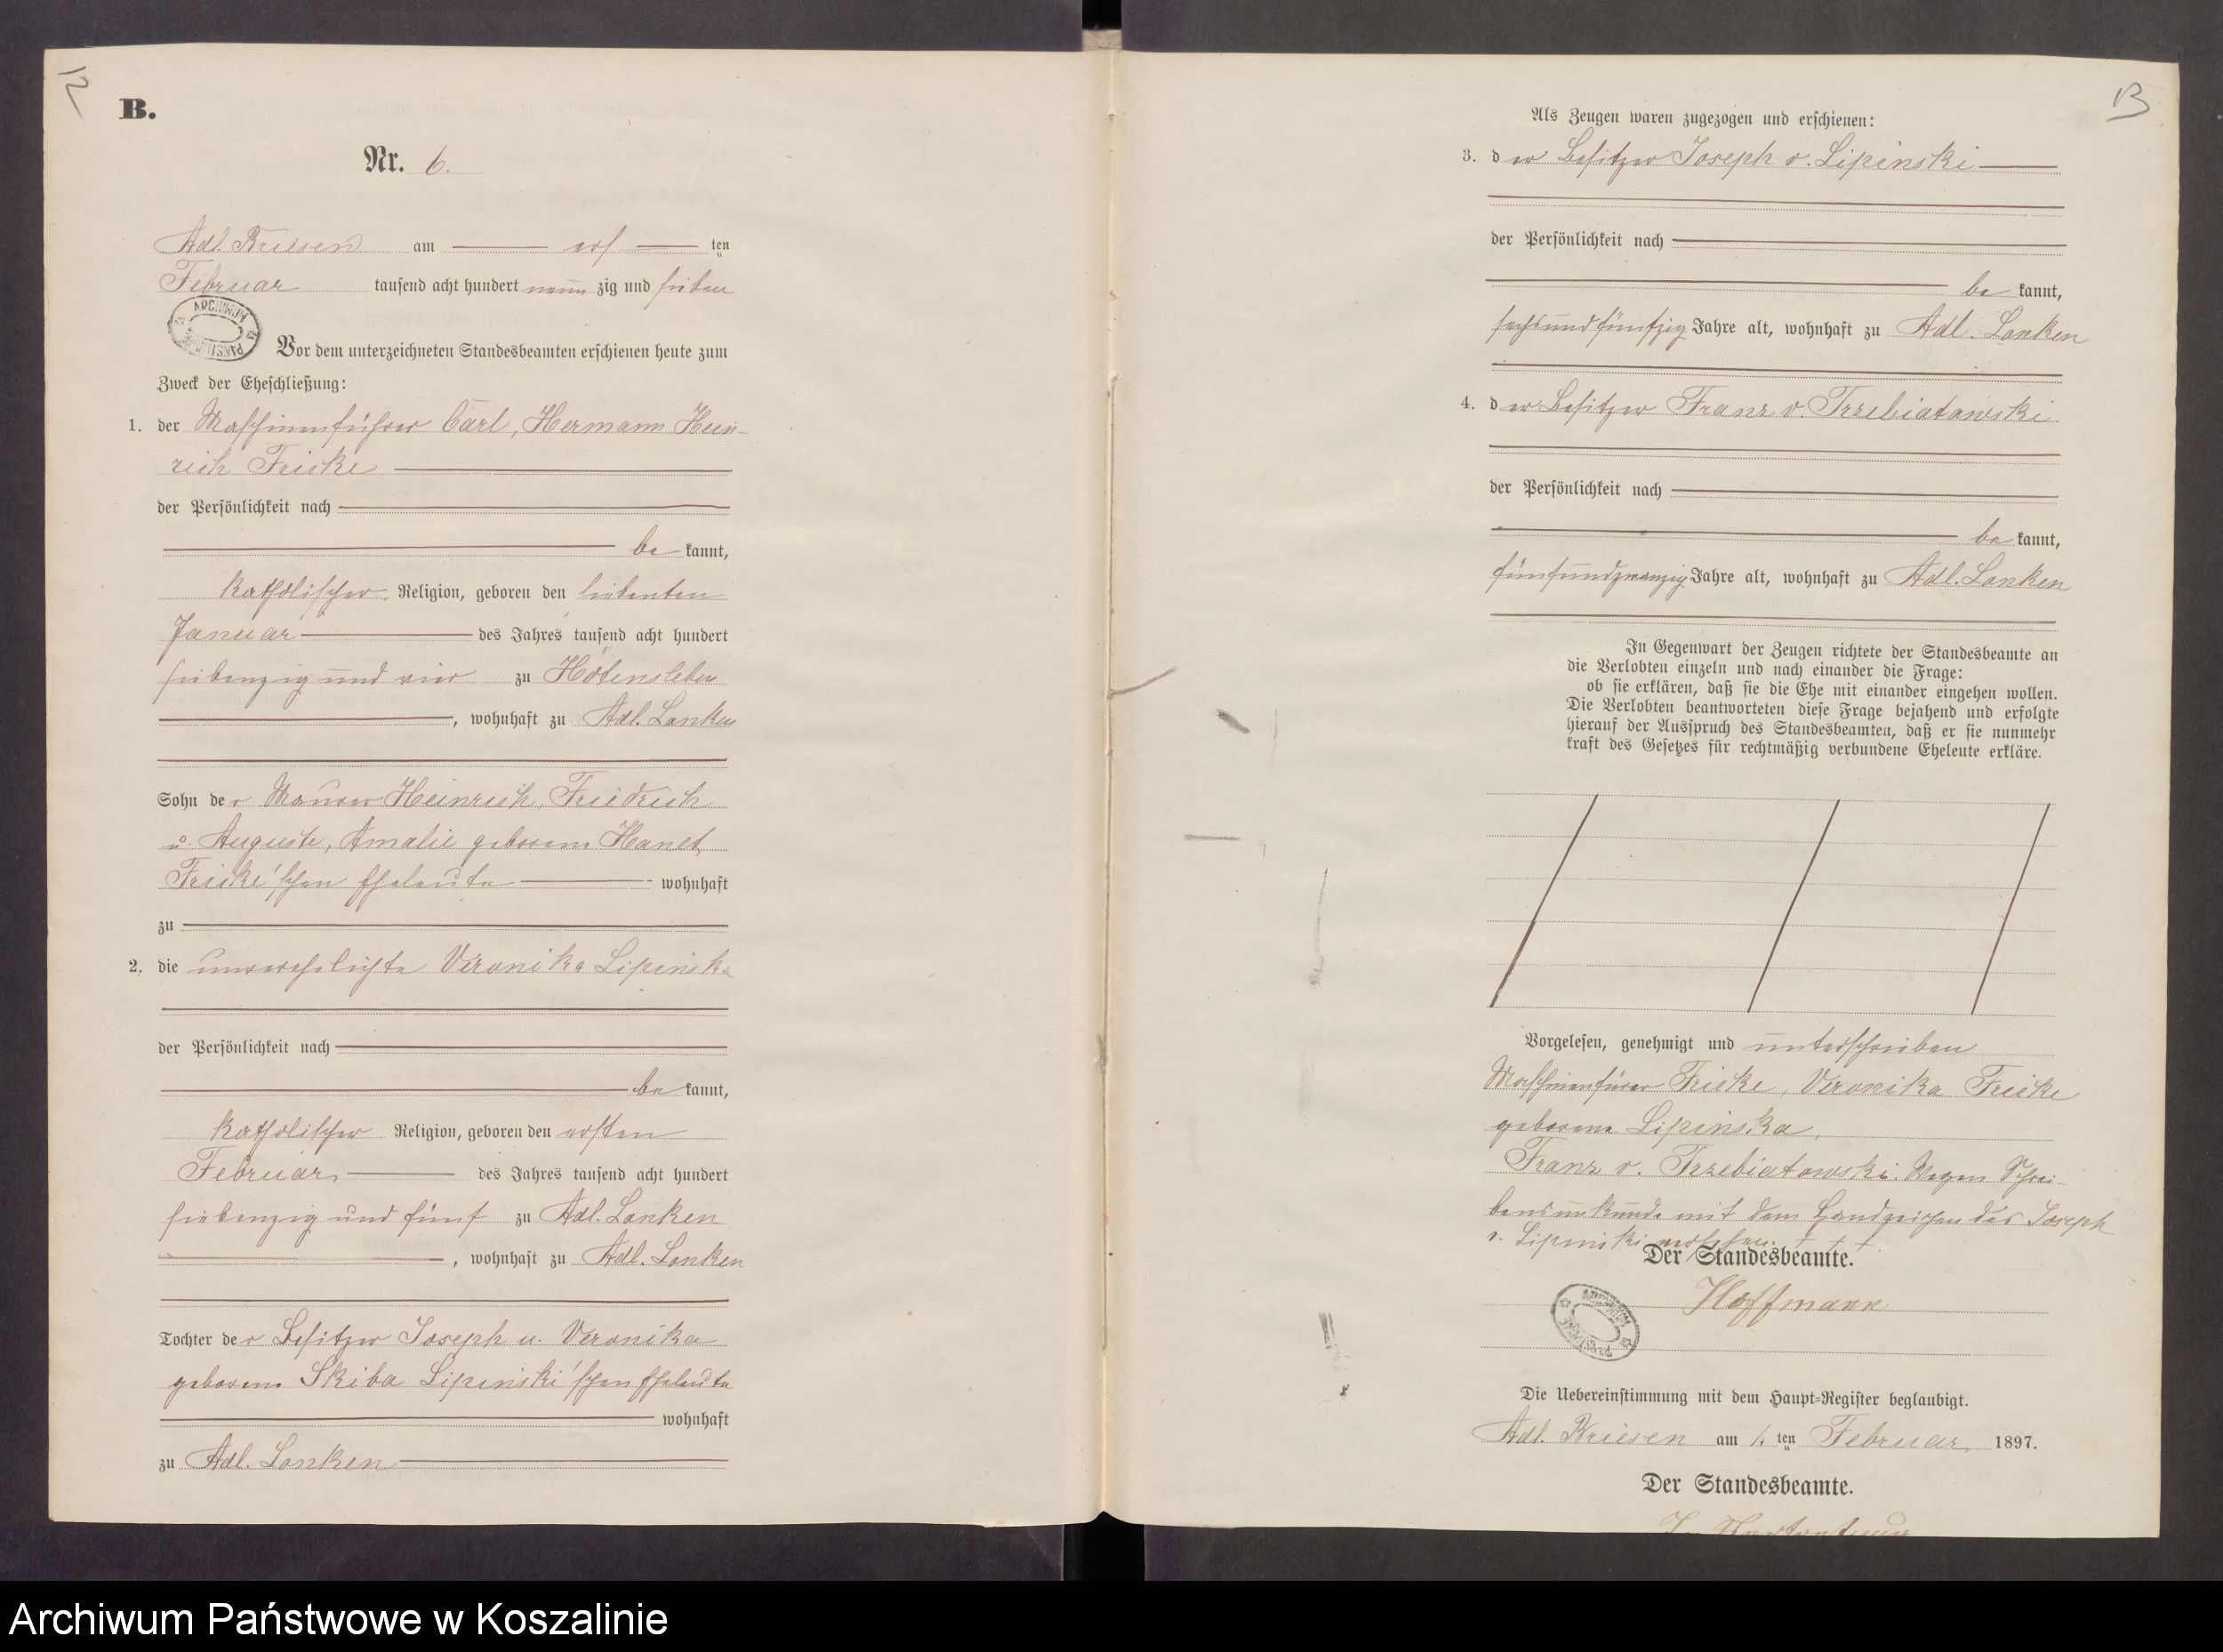 12
B.
Nr. 6.
Adl. Briesen am erſ ten
Februar tauſend acht hundert neun zig und ſieben
ARCHIWUM PAŃSTWOWE
Vor dem unterzeichneten Standesbeamten erſchienen heute zum
Zweck der Eheſchließung:
1. der Maſchinenführer Carl, Hermann Hein-
rich Friske
der Perſönlichkeit nach
be kannt,
katholiſcher Religion, geboren den ſiebenten
Januar des Jahres tauſend acht hundert
ſiebenzig und vier zu Hötensleben
, wohnhaft zu Adl. Lanken
Sohn der Maurer Heinrich, Friedrich
u. Auguste, Amalie geborene
Friske'ſchen Eheleute wohnhaft
zu
2. die unverehelichte Veronika Lipinska
der Perſönlichkeit nach
be kannt,
katholiſcher Religion, geboren den erſten
Februar des Jahres tauſend acht hundert
ſiebenzig und fünf zu Adl. Lanken
, wohnhaft zu Adl. Lanken
Tochter der Beſitzer Joseph u. Veronika
geborene Skiba Lipinski'ſchen Eheleute
wohnhaft
zu Adl. Lanken
13
Als Zeugen waren zugezogen und erſchienen:
3. der Beſitzer Joseph v. Lipinski
der Perſönlichkeit nach
be kannt,
ſechsundfünfzig Jahre alt, wohnhaft zu Adl. Lanken
4. der Beſitzer Franz v. Trzebiatowski
der Perſönlichkeit nach
be kannt,
fünfundzwanzig Jahre alt, wohnhaft zu Adl. Lanken
In Gegenwart der Zeugen richtete der Standesbeamte an
die Verlobten einzeln und nach einander die Frage:
ob ſie erklären, daß ſie die Ehe mit einander eingehen wollen.
Die Verlobten beantworteten dieſe Frage bejahend und erfolgte
hierauf der Ausſpruch des Standesbeamten, daß er ſie nunmehr
kraft des Geſetzes für rechtmäßig verbundene Eheleute erkläre.
Vorgeleſen, genehmigt und unterſchrieben
Maſchinenfürer Friske, Veronika Friske
geborene Lipinska,
Franz v. Trzebiatowski. Wegen Schrei-
bensunkunde mit dem Handzeichen des Joseph
v. Lipinski verſehen. + + +.
Der Standesbeamte.
Hoffmann
ARCHIWUM PAŃSTWOWE
Die Uebereinſtimmung mit dem Haupt-Regiſter beglaubigt.
Adl. Briesen am 1. ten Februar 1897.
Der Standesbeamte.
Archiwum Państwowe w Koszalinie